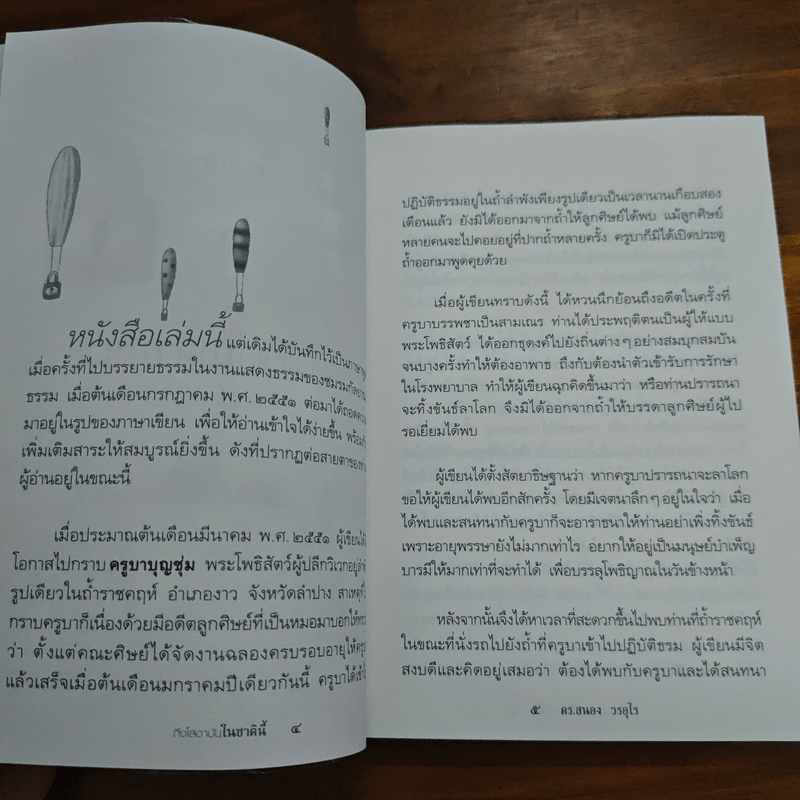 หนังสือเล่มนี้ แต่เดิมได้บันทึกไว้เป็นภาษา
เมื่อครั้งที่ไปบรรยายธรรมในงานแสดงธรรมของชมรมกัลยาณ
ธรรม เมื่อต้นเดือนกรกฎาคม พ.ศ. ๒๕๕๑ ต่อมาได้ถอดความ
มาอยู่ในรูปของภาษาเขียน เพื่อให้อ่านเข้าใจได้ง่ายขึ้น พร้อม
เพิ่มเติมสาระให้สมบูรณ์ยิ่งขึ้น ดังที่ปรากฏต่อสายตาของ
ผู้อ่านอยู่ในขณะนี้
เมื่อประมาณต้นเดือนมีนาคม พ.ศ. ๒๕๕๑ ผู้เขียนได้
โอกาสไปกราบ ครูบาบุญชุ่ม พระโพธิสัตว์ผู้ปลีกวิเวกอยู่
รูปเดียวในถ้ำราชคฤห์ อำเภองาว จังหวัดลำปาง สาเหตุที่
กราบครูบาก็เนื่องด้วยมีอดีตลูกศิษย์ที่เป็นหมอมาบอกให้
ว่า ตั้งแต่คณะศิษย์ได้จัดงานฉลองครบรอบอายุให้
แล้วเสร็จเมื่อต้นเดือนมกราคมปีเดียวกันนี้ ครูบาได้เข้า
ถึงโสดาบันในชาตินี้ ๔
ปฏิบัติธรรมอยู่ในถ้ำลำพังเพียงรูปเดียวเป็นเวลานานเกือบสอง
เดือนแล้ว ยังมิได้ออกมาจากถ้ำให้ลูกศิษย์ได้พบ แม้ลูกศิษย์
หลายคนจะไปคอยอยู่ที่ปากถ้ำหลายครั้ง ครูบาก็มิได้เปิดประตู
ถ้ำออกมาพูดคุยด้วย
เมื่อผู้เขียนทราบดังนี้ ได้หวนนึกย้อนถึงอดีตในครั้งที่
ครูบาบรรพชาเป็นสามเณร ท่านได้ประพฤติตนเป็นผู้ให้แบบ
พระโพธิสัตว์ ได้ออกธุดงค์ไปยังถิ่นต่างๆ อย่างสมบุกสมบัน
จนบางครั้งทำให้ต้องอาพาธ ถึงกับต้องนำตัวเข้ารับการรักษา
ในโรงพยาบาล ทำให้ผู้เขียนฉุกคิดขึ้นมาว่า หรือท่านปรารถนา
จะทิ้งขันธ์ลาโลก จึงมิได้ออกจากถ้ำให้บรรดาลูกศิษย์ผู้ไป
รอเยี่ยมได้พบ
ผู้เขียนได้ตั้งสัตยาธิษฐานว่า หากครูบาปรารถนาจะลาโลก
ขอให้ผู้เขียนได้พบอีกสักครั้ง โดยมีเจตนาลึกๆ อยู่ในใจว่า เมื่อ
ได้พบและสนทนากับครูบาก็จะอาราธนาให้ท่านอย่าเพิ่งทิ้งขันธ์
เพราะอายุพรรษายังไม่มากเท่าไร อยากให้อยู่เป็นมนุษย์บำเพ็ญ
บารมีให้มากเท่าที่จะทำได้ เพื่อบรรลุโพธิญาณในวันข้างหน้า
หลังจากนั้นจึงได้หาเวลาที่สะดวกขึ้นไปพบท่านที่ถ้ำราชคฤห์
ในขณะที่นั่งรถไปยังถ้ำที่ครูบาเข้าไปปฏิบัติธรม ผู้เขียนมีจิต
สงบดีและคิดอยู่เสมอว่า ต้องได้พบกับครูบาและได้สนทนา
๕ ดร.สนอง วรอุไร